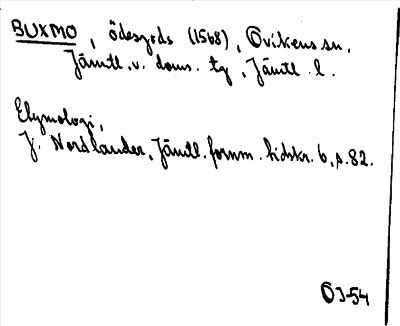 BUXMO, ödesgods (1568), Ovikens sn,
Jämtl. v. doms. tg, Jämtl. l.
Etymologi,
J. Nordlander, Jämtl. fornm. tidskr. 6, s. 82.
ÖJ-54